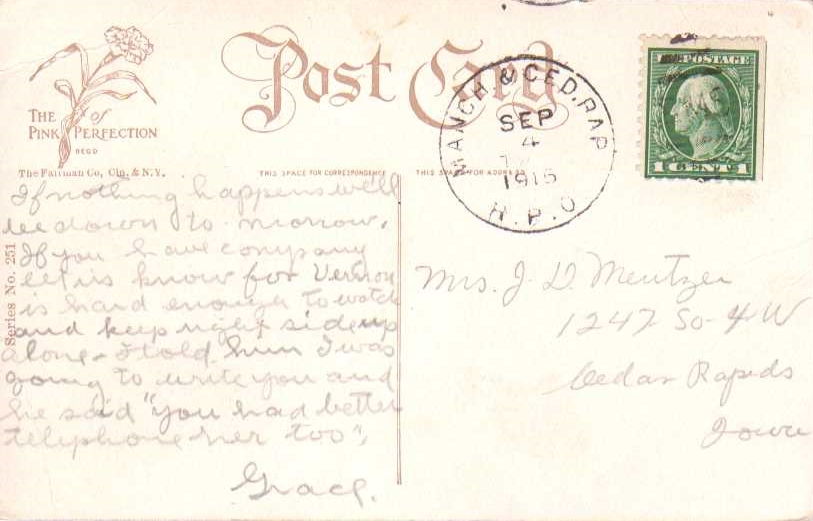 Post Card
THE of
PINK PERFECTION
REGD
The Fairman Co, Cin, & N.Y.
THIS SPACE FOR CORRESPONDENCE
THIS SPACE FOR ADDRESS
MANCH & CED. RAP
SEP
4
1915
R.P.O
U.S. POSTAGE
1 CENTS 1
Series No. 251
If nothing happens we'll
be down to morrow.
If you have company
let us know for Vernon
is hard enough to watch
and keep right side up
alone - I told him I was
going to write you and
he said "you had better
telephone her too".
Grace.
Mrs. J. D. Mentzer
1247 So- 4 W
Cedar Rapids
Iowa